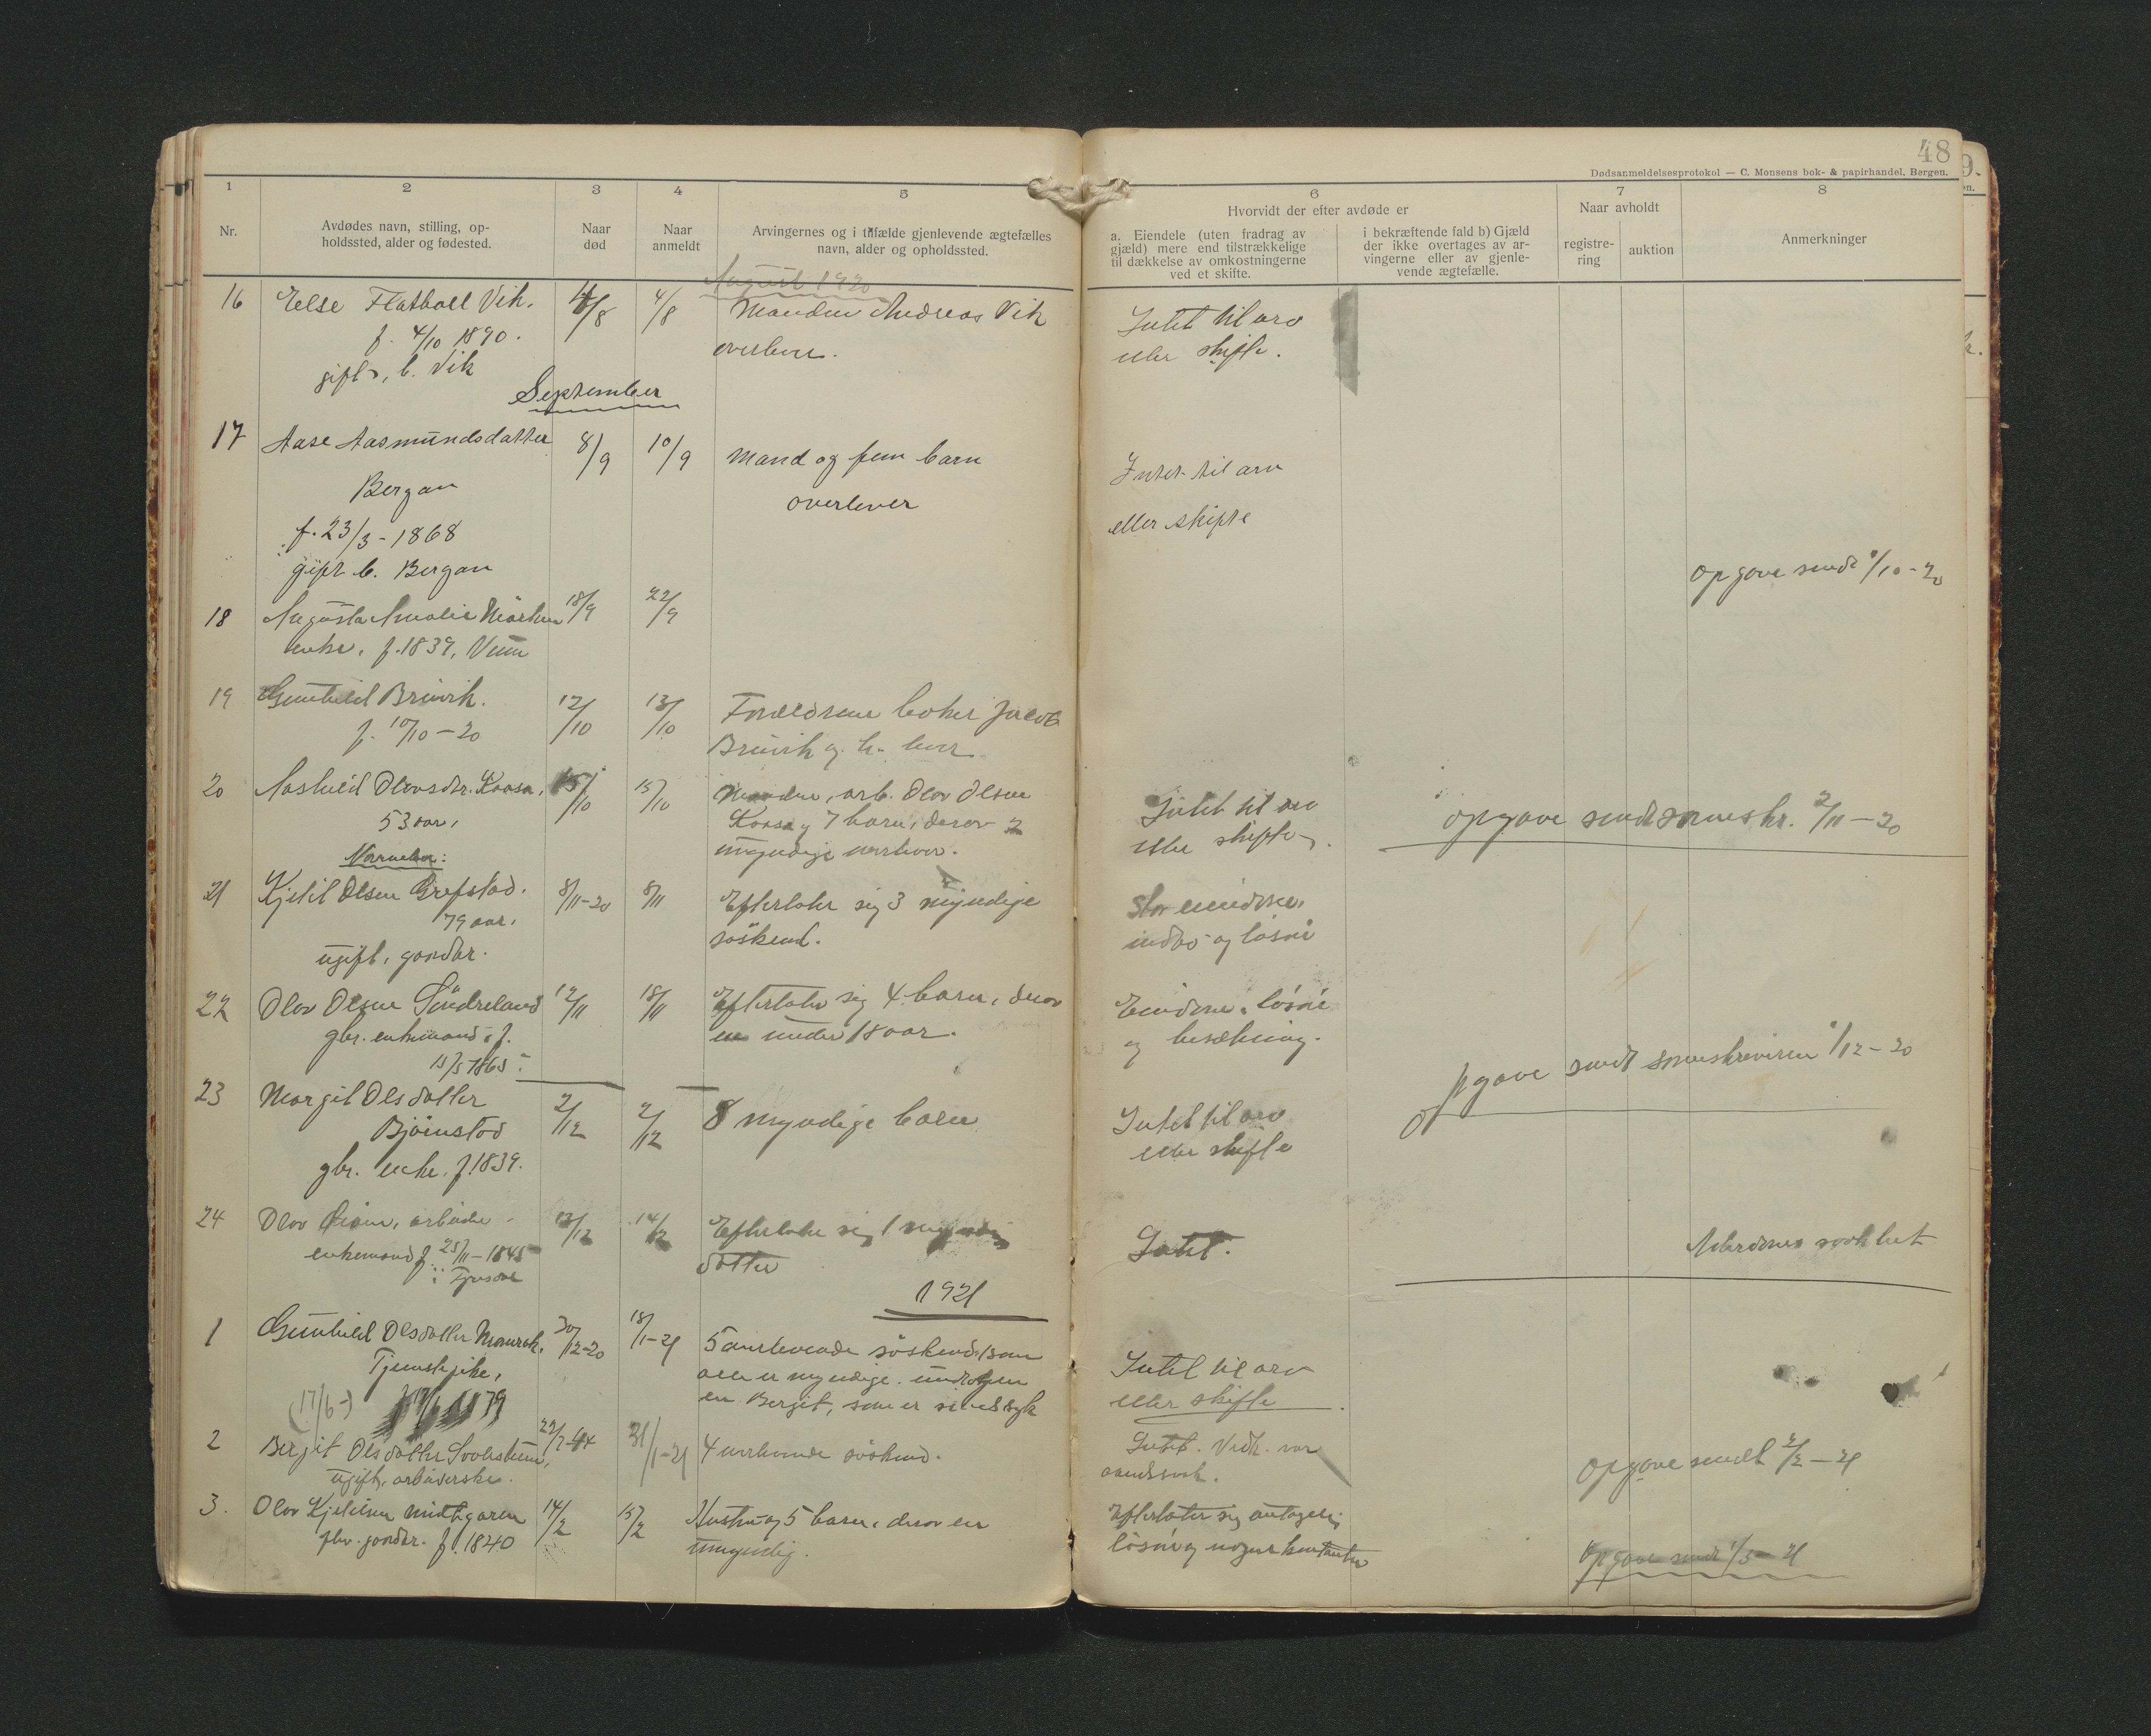 48
Dødsanmeldelsesprotokol — C. Monsens bok- & papirhandel, Bergen.
1
2
3
4
5
6
7
8
Nr.
Avdødes navn, stilling, op-
holdssted, alder og fødested.
Naar
død
Naar
anmeldt
Arvingernes og i tilfælde gjenlevende ægtefælles
navn, alder og opholdssted.
Hvorvidt der efter avdøde er
a. Eiendele (uten fradrag av
gjæld) mere end tilstrækkelige
til dækkelse av omkostningerne
ved et skifte.
i bekræftende fald b) Gjæld
der ikke overtages av ar-
vingerne eller av gjenle-
vende ægtefælle.
Naar avholdt
registre-
ring
auktion
Anmerkninger
August 1920
16
Else Flatboel Vik.
f. 4/10 1890.
gift, b. Vik
4/8
4/8
Manden Andreas Vik
overlever.
Intet til arv
eller skifte.
September
17
Aase Aasmundsdatter
Bergan
f. 23/3 - 1868
gift b. Bergan
8/9
10/9
Mand og fem barn
overlever
Intet til arv
eller skifte
Opgave sendt 1/10 - 20
18
Augusta Amalie
enke, f. 1839,
18/9
22/9
19
Gunhild Breivik.
f. 10/10 - 20
12/10
13/10
Forældrene Jacob
Breivik og h. lever
20
Aashild Olavsdtr. Kaasa,
53 aar,
15/10
15/10
Manden, arb. Olav Olsen
Kaasa og 7 barn, derav 2
umyndige overlever.
Intet til arv
eller skifte.
Opgave sendt sorenskr. 2/11 - 20
November:
21
Kjetil Olsen Grefstad.
79 aar,
ugift, gaardbr.
8/11 - 20
8/11
Efterlater sig 3 myndige
søskend.
Stor eiendom,
indbo og løsøre
22
Olav Olsen Sundreland
gbr. enkemand, f.
15/5 1865.
12/11
18/11
Efterlater sig 4 barn, derav
en under 18 aar.
Eiendom, løsøre
og besætning.
Opgave sendt sorenskriveren 1/12 - 20
23
Margit Olsdatter
Bjørnstad
gbr. enke. f. 1839.
2/12
2/12
8 myndige barn
Intet til arv
eller skifte
24
Olav arbeider
enkemand f. 25/11 - 1845
13/12
14/12
Efterlater sig 1 myndig
datter
Intet.
1921
1
Gunhild Olsdatter
Tjenestepike,
(17/6 -) 1879
30/12-20
18/1-21
5 overlevende søskend, som
alle er myndige undtagen
en Bergit, som er sindssyk
Intet til arv
eller skifte
2
Bergit Olsdatter
ugift, arbeiderske.
31/1-21
4 overlevende søskend.
Intet. Vedk. var
sindssyk.
Opgave sendt 2/2 - 21
3.
Olav Kjetilsen Midtgaren
fhv. gaardbr. f. 1840
14/2
15/2
Hustru og 5 barn, derav en
umyndig.
Efterlater sig antagelig
løsøre og nogen kontanter
Opgave sendt 1/3 - 21